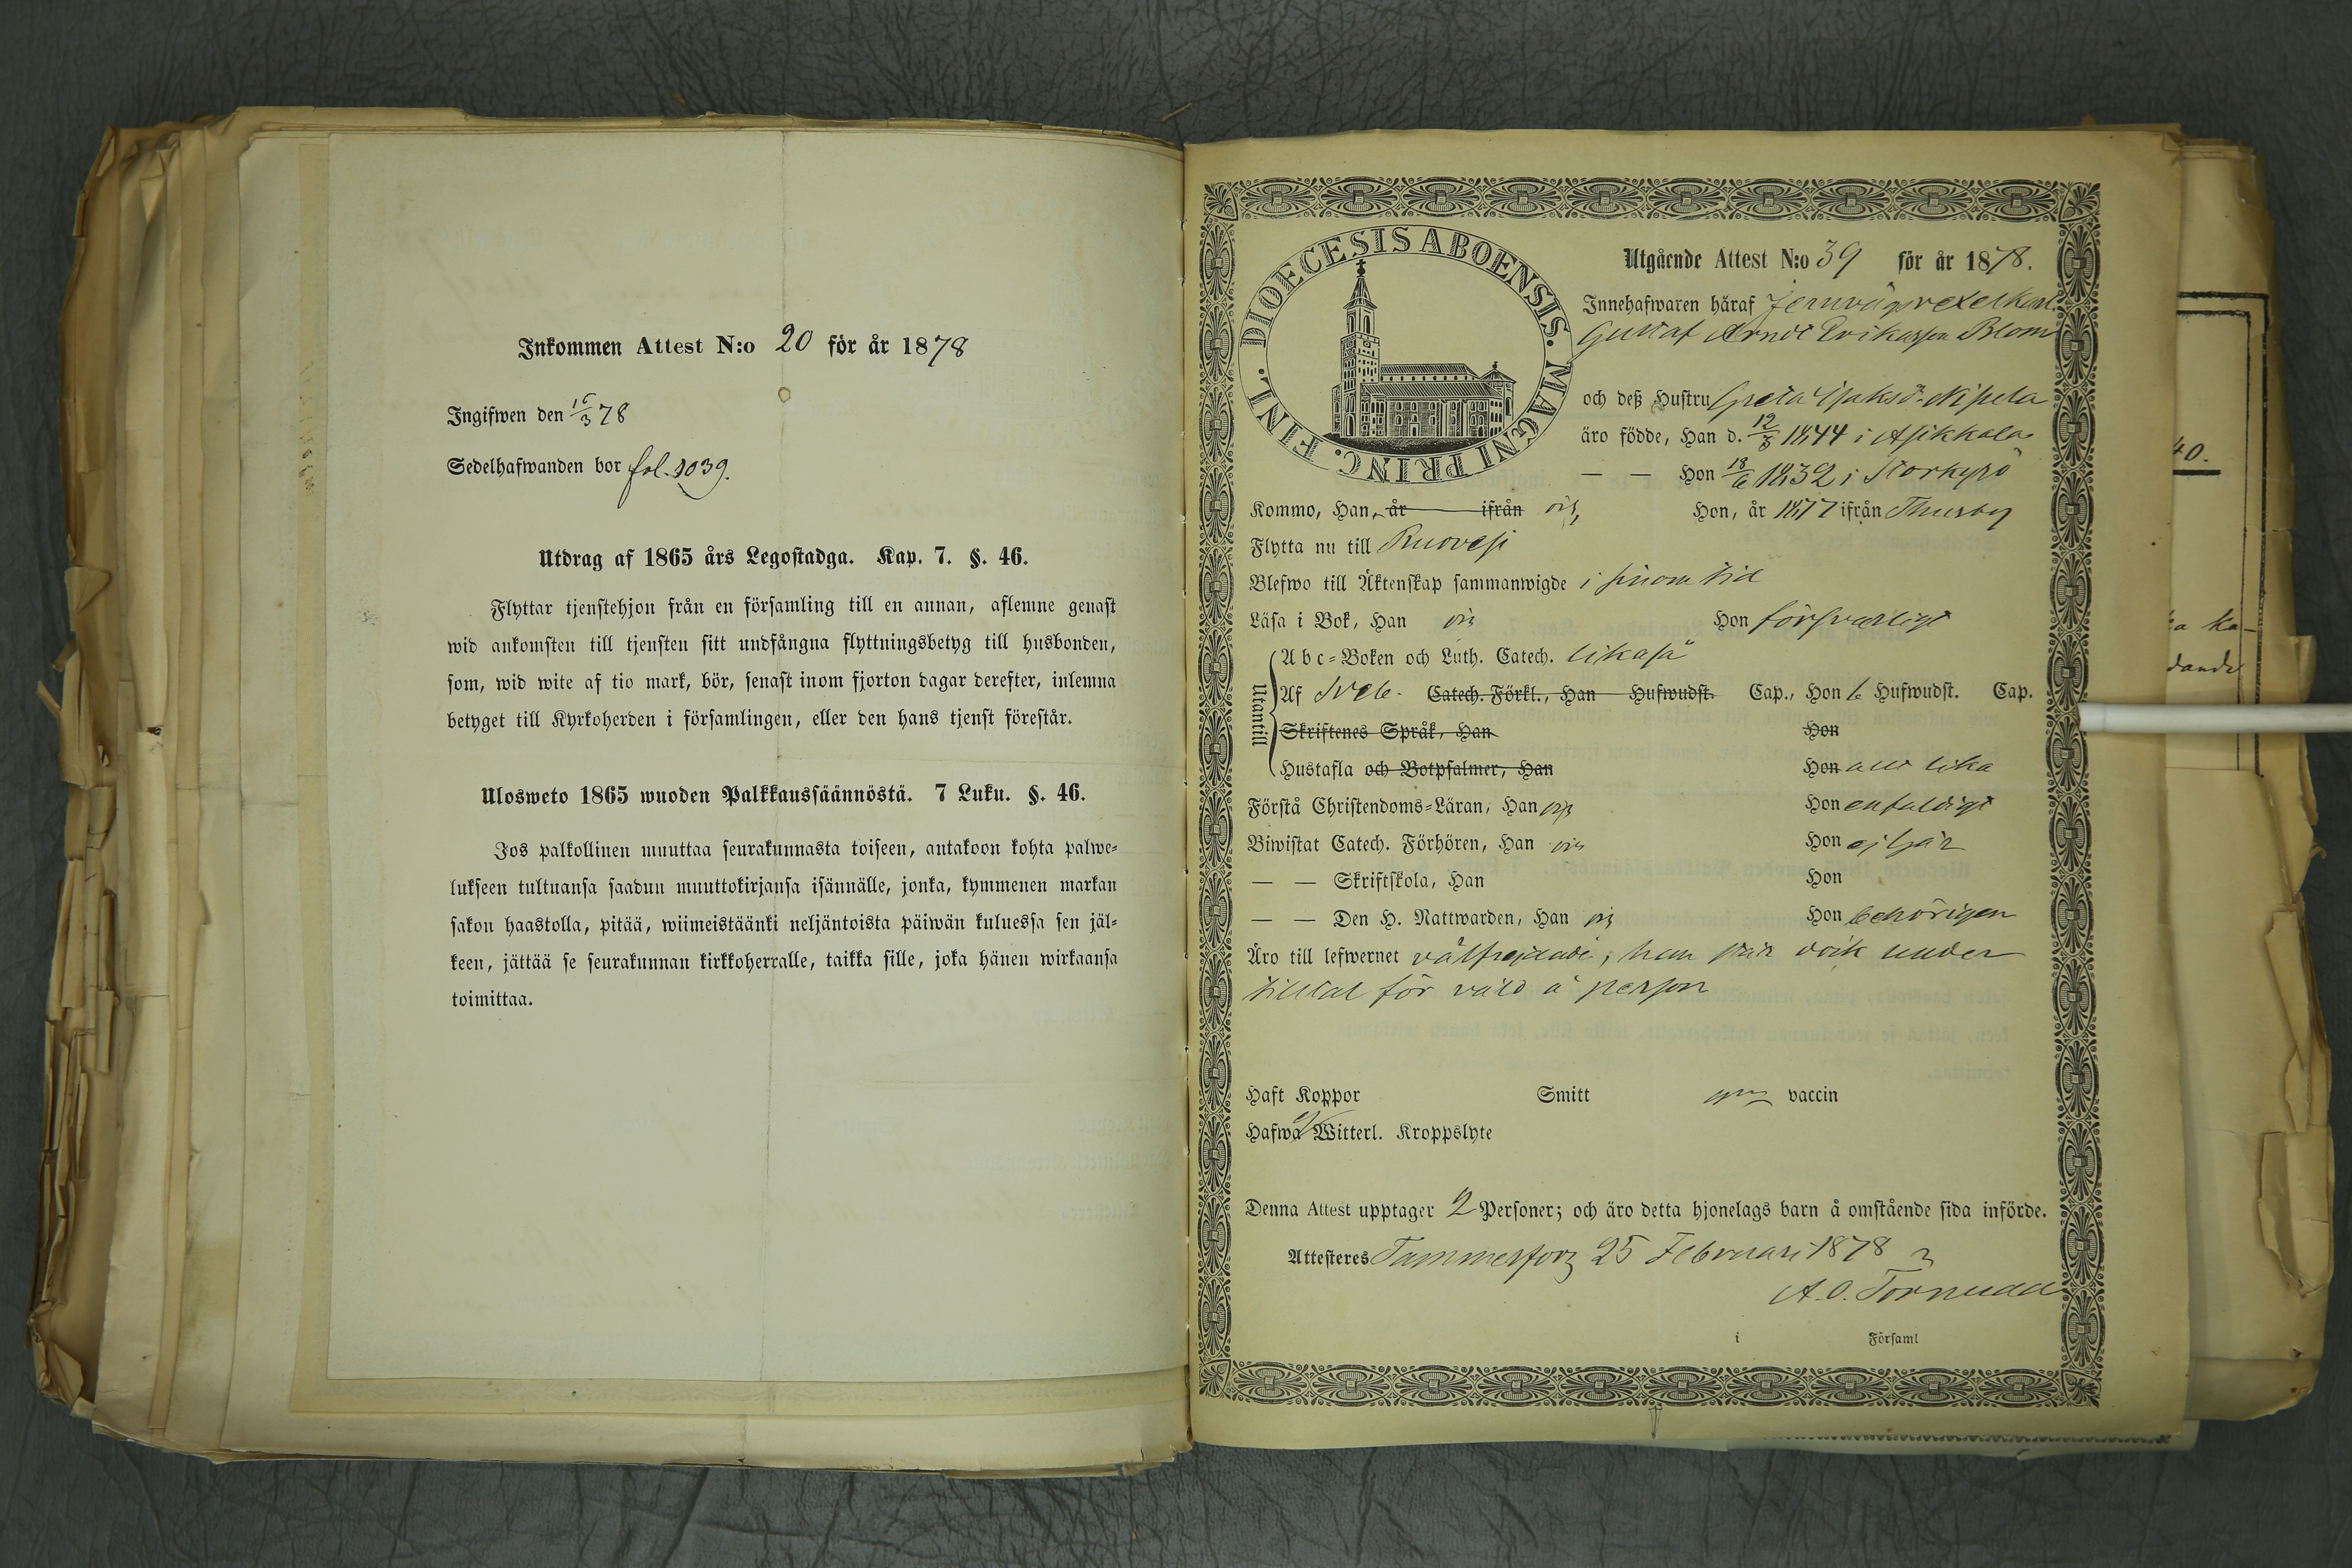 Inkommen Attest N:o 20 för år 1878
Ingifwen den 15/3 78
Sedelhafwanden bor fol. 1039.
Utdrag af 1865 års Legostadga. Kap. 7. §. 46.
Flyttar tjenstehjon från en församling till en annan, aflemne genast
wid ankomsten till tjensten sitt undfångna flyttningsbetyg till husbonden,
som, wid wite af tio mark, bör, senast inom fjorton dagar derefter, inlemna
betyget till Kyrkoherden i församlingen, eller den hans tjenst förestår.
Ulosweto 1865 wuoden Palkkaussäännöstä. 7 Luku. §. 46.
Jos palkollinen muuttaa seurakunnasta toiseen, antakoon kohta palwe-
lukseen tultuansa saadun muuttokirjansa isännälle, jonka, kymmenen markan
sakon haastolla, pitää, wiimeistäänki neljäntoista päiwän kuluessa sen jäl-
keen, jättää se seurakunnan kirkkoherralle, taikka sille, joka hänen wirkaansa
toimittaa.
DIOECESIS ABOENSIS. MAGNI PRINC. FINL.
Utgående Attest N:o 39 för år 1878.
Innehafwaren häraf Jernvägsvexelkarl.
Gustaf Arndt Eriksson Blom
och deß Hustru Greta Isaksdr
äro födde, Han d. 12/8 1844 i Asikkala
— — Hon 18/6 1832 i Storkyrö
Kommo, Han, år ifrån Hon, år 1877 ifrån Thusby
Flytta nu till Ruovesi
Blefwo till Äktenskap sammanwigde i sinom tid
Läsa i Bok, Han Hon försvarligt
Utantill
Abc-Boken och Luth. Catech. likaså
Af Sveb. Catech. Förkl., Han Hufwudst. Cap., Hon 6 Hufwudst. Cap.
Skriftenes Språk, Han Hon
Hustafla och Botpsalmer, Han Hon allt lika
Förstå Christendoms-Läran, Han Hon enfaldigt
Biwistat Catech. Förhören, Han Hon ej här
— — Skriftskola, Han Hon
— — Den H. Nattwarden, Han Hon behörigen
Äro till lefwernet välfrejdade; han står dock under
tilltal för våld å person
Haft Koppor Smitt vaccin
Hafwa ej Witterl. Kroppslyte
Denna Attest upptager 2 Personer; och äro detta hjonelags barn å omstående sida införde.
Attesteres Tammerfors 25 Februari 1878
A. O. Törnudd
i Församl
40.